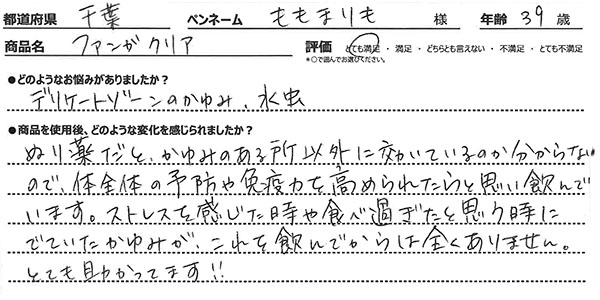 都道府県 千葉 ペンネーム ももまりも 様 年齢 39 歳
商品名 ファンガクリア 評価 とても満足 ・ 満足 ・ どちらとも言えない ・ 不満足 ・ とても不満足
*○で囲んでお選びください。
●どのようなお悩みがありましたか？
デリケートゾーンのかゆみ、水虫
●商品を使用後、どのような変化を感じられましたか？
ぬり薬だと、かゆみのある所以外に効いているのか分からない
ので、体全体の予防や免疫力を高められたらと思い飲んで
います。ストレスを感じた時や食べ過ぎたと思う時に
でていたかゆみが、これを飲んでからは全くありません。
とても助かってます!!